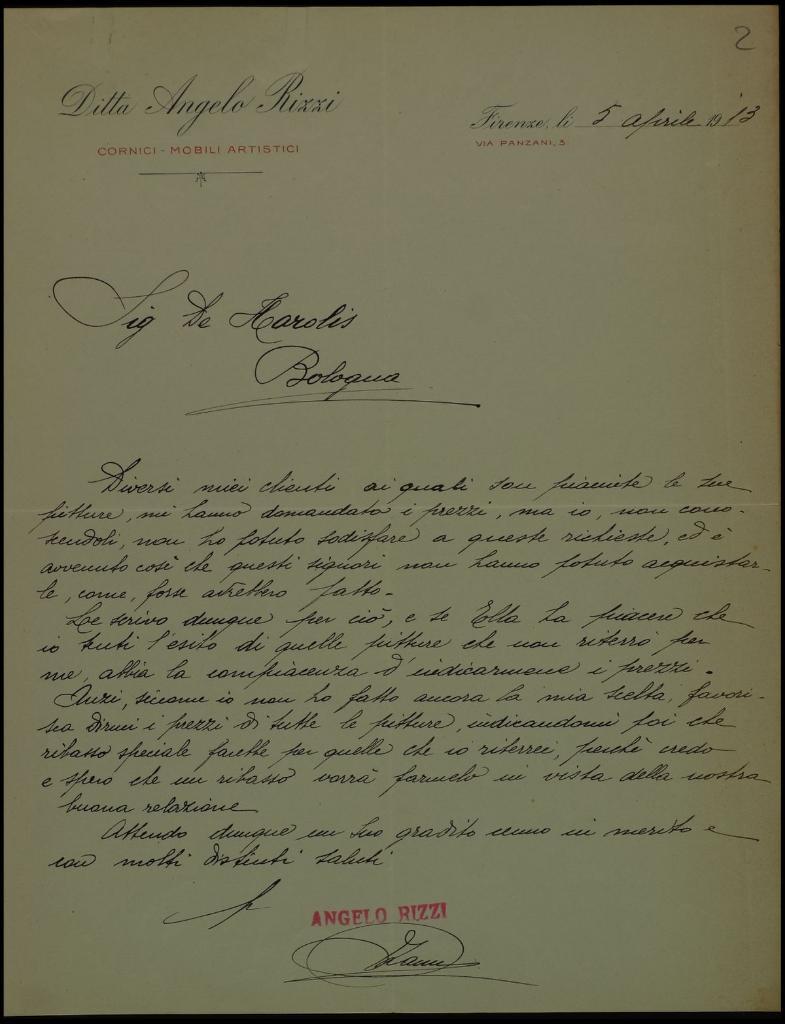 2
Ditta Angelo Rizzi
CORNICI - MOBILI ARTISTICI
Firenze, li 5 Aprile 1913
VIA PANZANI, 3
Sig De Karolis
Bologna
Diversi miei clienti ai quali son piaciute le sue
pitture, mi hanno domandato i prezzi, ma io, non cono-
scendoli, non ho potuto sodisfare a queste richieste, ed è
avvenuto così che questi signori non hanno potuto acquistar-
le, come, forse avrebbero fatto.
Le scrivo dunque per ciò, e se Ella ha piacere che
io tenti l'esito di quelle pitture che non riterrò per
me, abbia la compiacenza d'indicarmene i prezzi.
Anzi, siccome io non ho fatto ancora la mia scelta, favori-
sca dirmi i prezzi di tutte le pitture, indicandomi poi che
ribasso speciale farebbe per quelle che io riterrei, perchè credo
e spero che un ribasso vorrà farmelo in vista della nostra
buona relazione
Attendo dunque un suo gradito cenno in merito e
con molti distinti saluti
p
ANGELO RIZZI